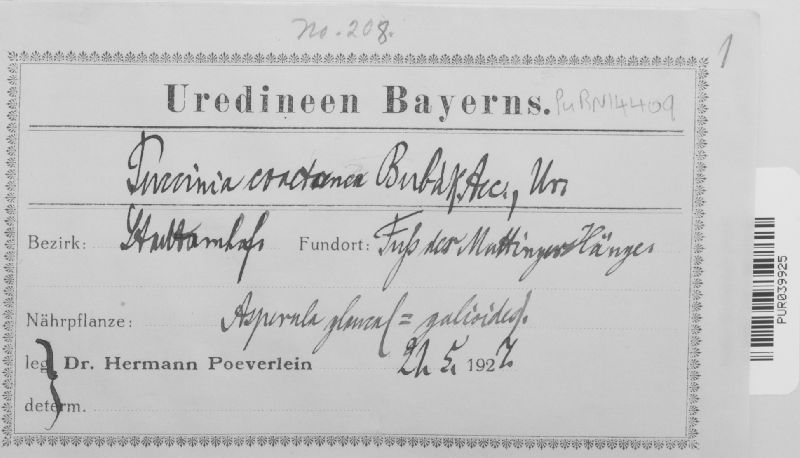 No. 208.
1
Uredineen Bayerns. PuRN14409
Puccinia Bubák, Aec., Ur.
Bezirk: Stadtamhof. Fundort: Fuß der Mattinger Hänge.
Nährpflanze: Asperula glauca (= galioides).
leg. Dr. Hermann Poeverlein 21. 5. 1927.
determ.
PUR039925